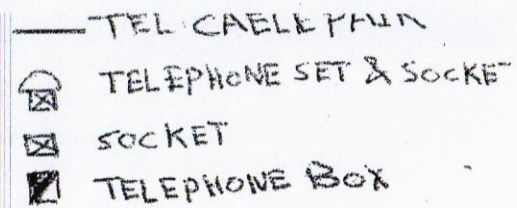 TEL. CAELE PAIR
TELEPHONE SET & SOCKET
SOCKET
TELEPHONE BOX